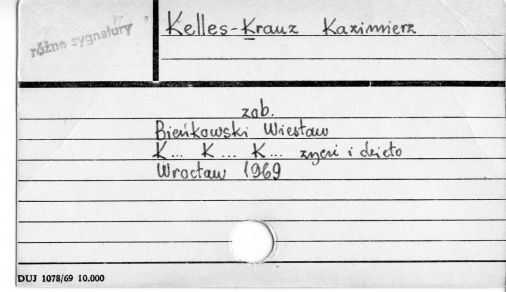 różne sygnatury
Kelles-Krauz Kazimierz
zob.
Bieńkowski Wiesław
K... K... K... życie i dzieło
Wrocław 1969
DUJ 1078/69 10.000